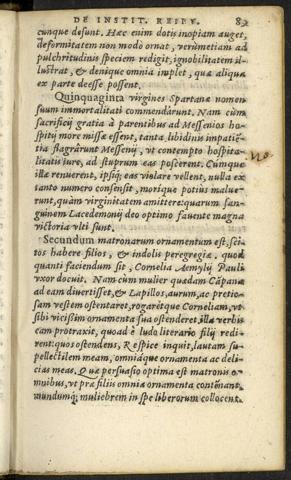 DE INSTIT. REIPV. 83
cunque desunt. Hæc enim dotis inopiam auget,
deformitatem non modo ornat, verùmetiam ad
pulchritudinis speciem redigit, ignobilitatem il-
lustrat, & denique omnia inplet, quæ aliqua
ex parte deesse possent.
Quinquaginta virgines Spartanæ nomen
suum immortalitati commendarunt. Nam cùm
sacrificij gratia à parentibus ad Messenios ho-
spitij more missæ essent, tanta libidinis impatiẽ-
tia flagrârunt Messenij, vt contempto hospita-
litatis iure, ad stuprum eas poscerent. Cùmque
illæ renuerent, ipsiq; eas violare vellent, nulla ex
tanto numero consensit, morique potius malue-
runt, quàm virginitatem amittere: quarum san-
guinem Lacedemonij deo optimo fauente magna
victoria vlti sunt.
Secundum matronarum ornamentum est, sci-
tos habere filios, & indolis peregregiæ. quod
quanti faciendum sit, Cornelia Aemylij Pauli
vxor docuit. Nam cùm mulier quædam Cãpana
ad eam diuertisset, & Lapillos, aurum, ac pretio-
sam vestem ostentaret, rogarétque Corneliam, vt
sibi vicißim ornamenta sua ostenderet, illa verbis
eam protraxit, quoad è ludo literario filij redi-
rent: quos ostendens, Respice inquit, lautam su-
pellectilem meam, omniáque ornamenta ac deli-
cias meas. Quæ persuasio optima est matronis o-
mnibus, vt præ filiis omnia ornamenta contẽnant,
mundumq; muliebrem in spe liberorum collocent.